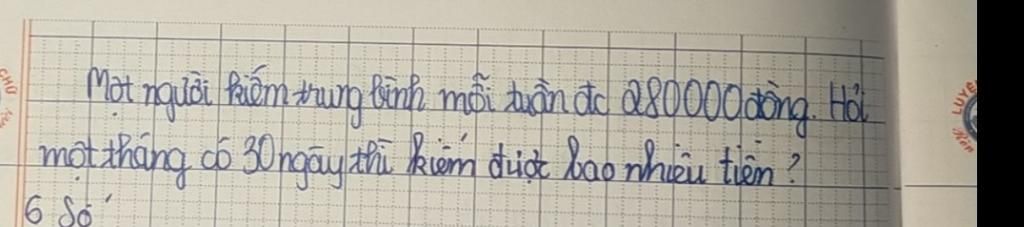 Một người kiếm trung bình mỗi tuần đc 280000đồng. Hỏi
một tháng có 30 ngày thì kiếm được bao nhiêu tiền?
6 Số
LUYỆ